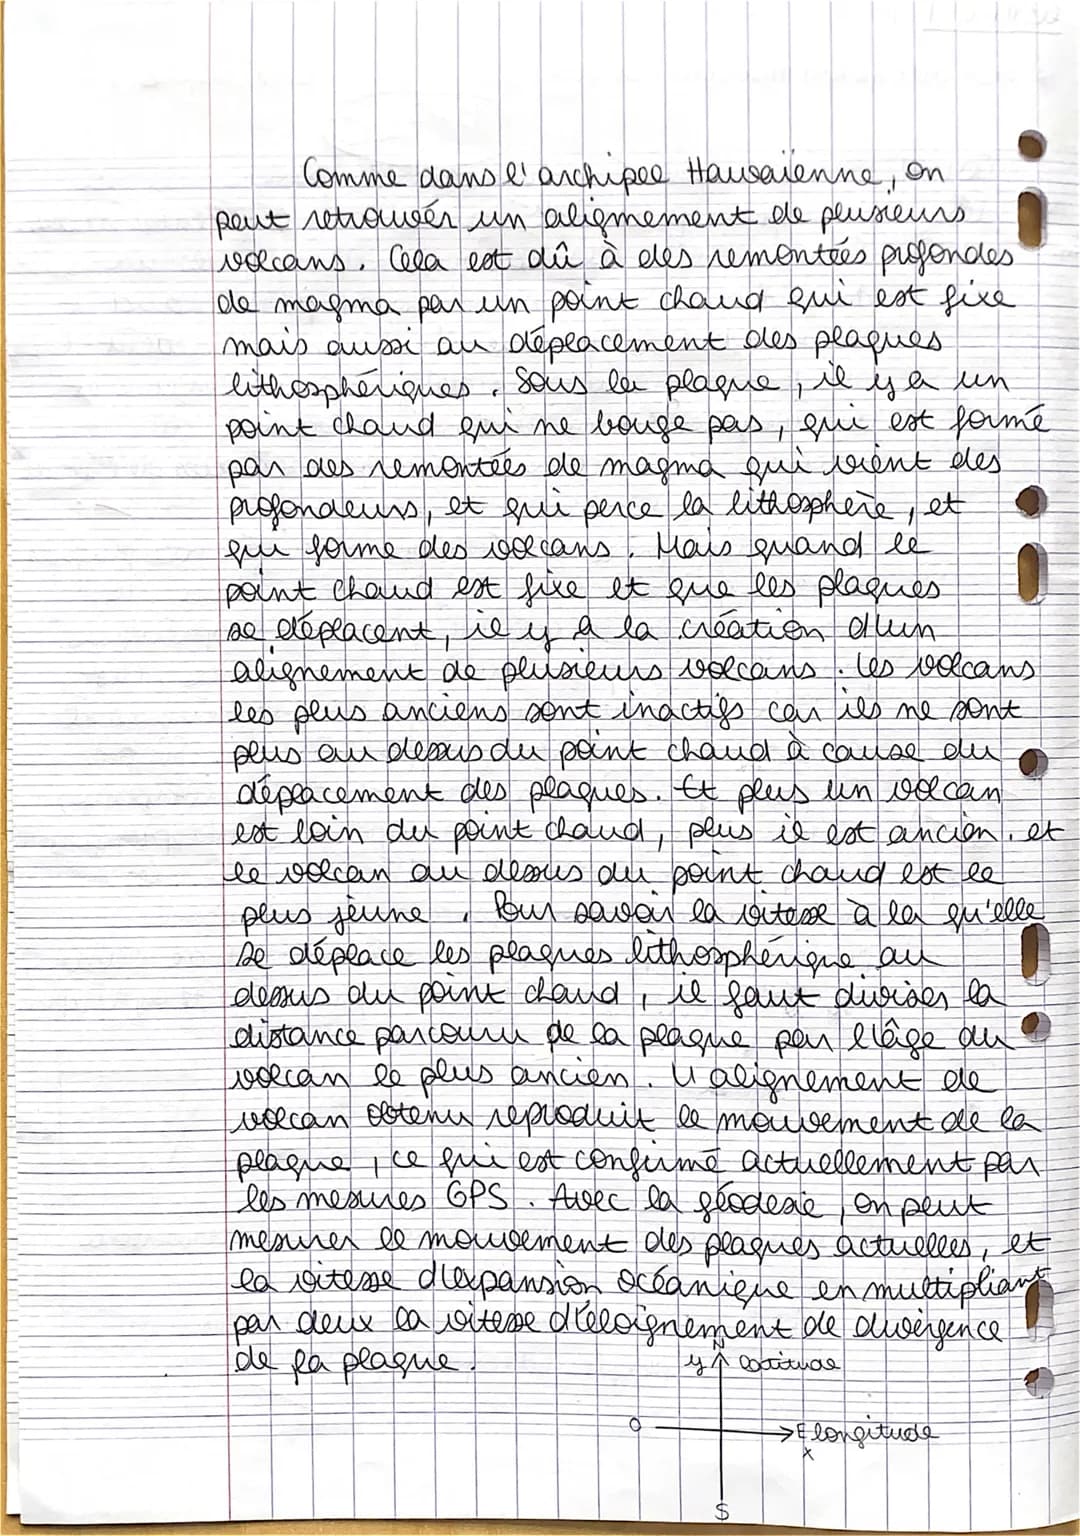 Comme dans l'archipel Hawaïenne, on
peut retrouver un alignement de plusieurs
volcans. Cela est dû à des remontées profondes
de magma par un point chaud qui est fixe
mais aussi au déplacement des plaques
lithosphériques. Sous la plaque, il y a un
point chaud qui ne bouge pas, qui est formé
par des remontées de magma qui vient des
profondeurs, et qui perce la lithosphère, et
qui forme des volcans. Mais quand le
point chaud est fixe et que les plaques
se déplacent, il y a la création d'un
alignement de plusieurs volcans. Les volcans
les plus anciens sont inactifs car ils ne sont
plus au dessus du point chaud à cause du
déplacement des plaques. Et plus un volcan
est loin du point chaud, plus il est ancien. et
le volcan au dessus du point chaud est le
plus jeune. Pour savoir la vitesse à la qu'elle
se déplace les plaques lithosphérique au
dessus du point chaud, il faut diviser la
distance parcouru de la plaque par l'âge du
volcan le plus ancien. L'alignement de
volcan obtenu reproduit le mouvement de la
plaque, ce qui est confirmé actuellement par
les mesures GPS. Avec la géodesie, on peut
mesurer le mouvement des plaques actuelles, et
la vitesse d'expansion océanique en multipliant
par deux la vitesse d'éloignement de divergence
de la plaque.
N
y latitude
O
E longitude
x
S